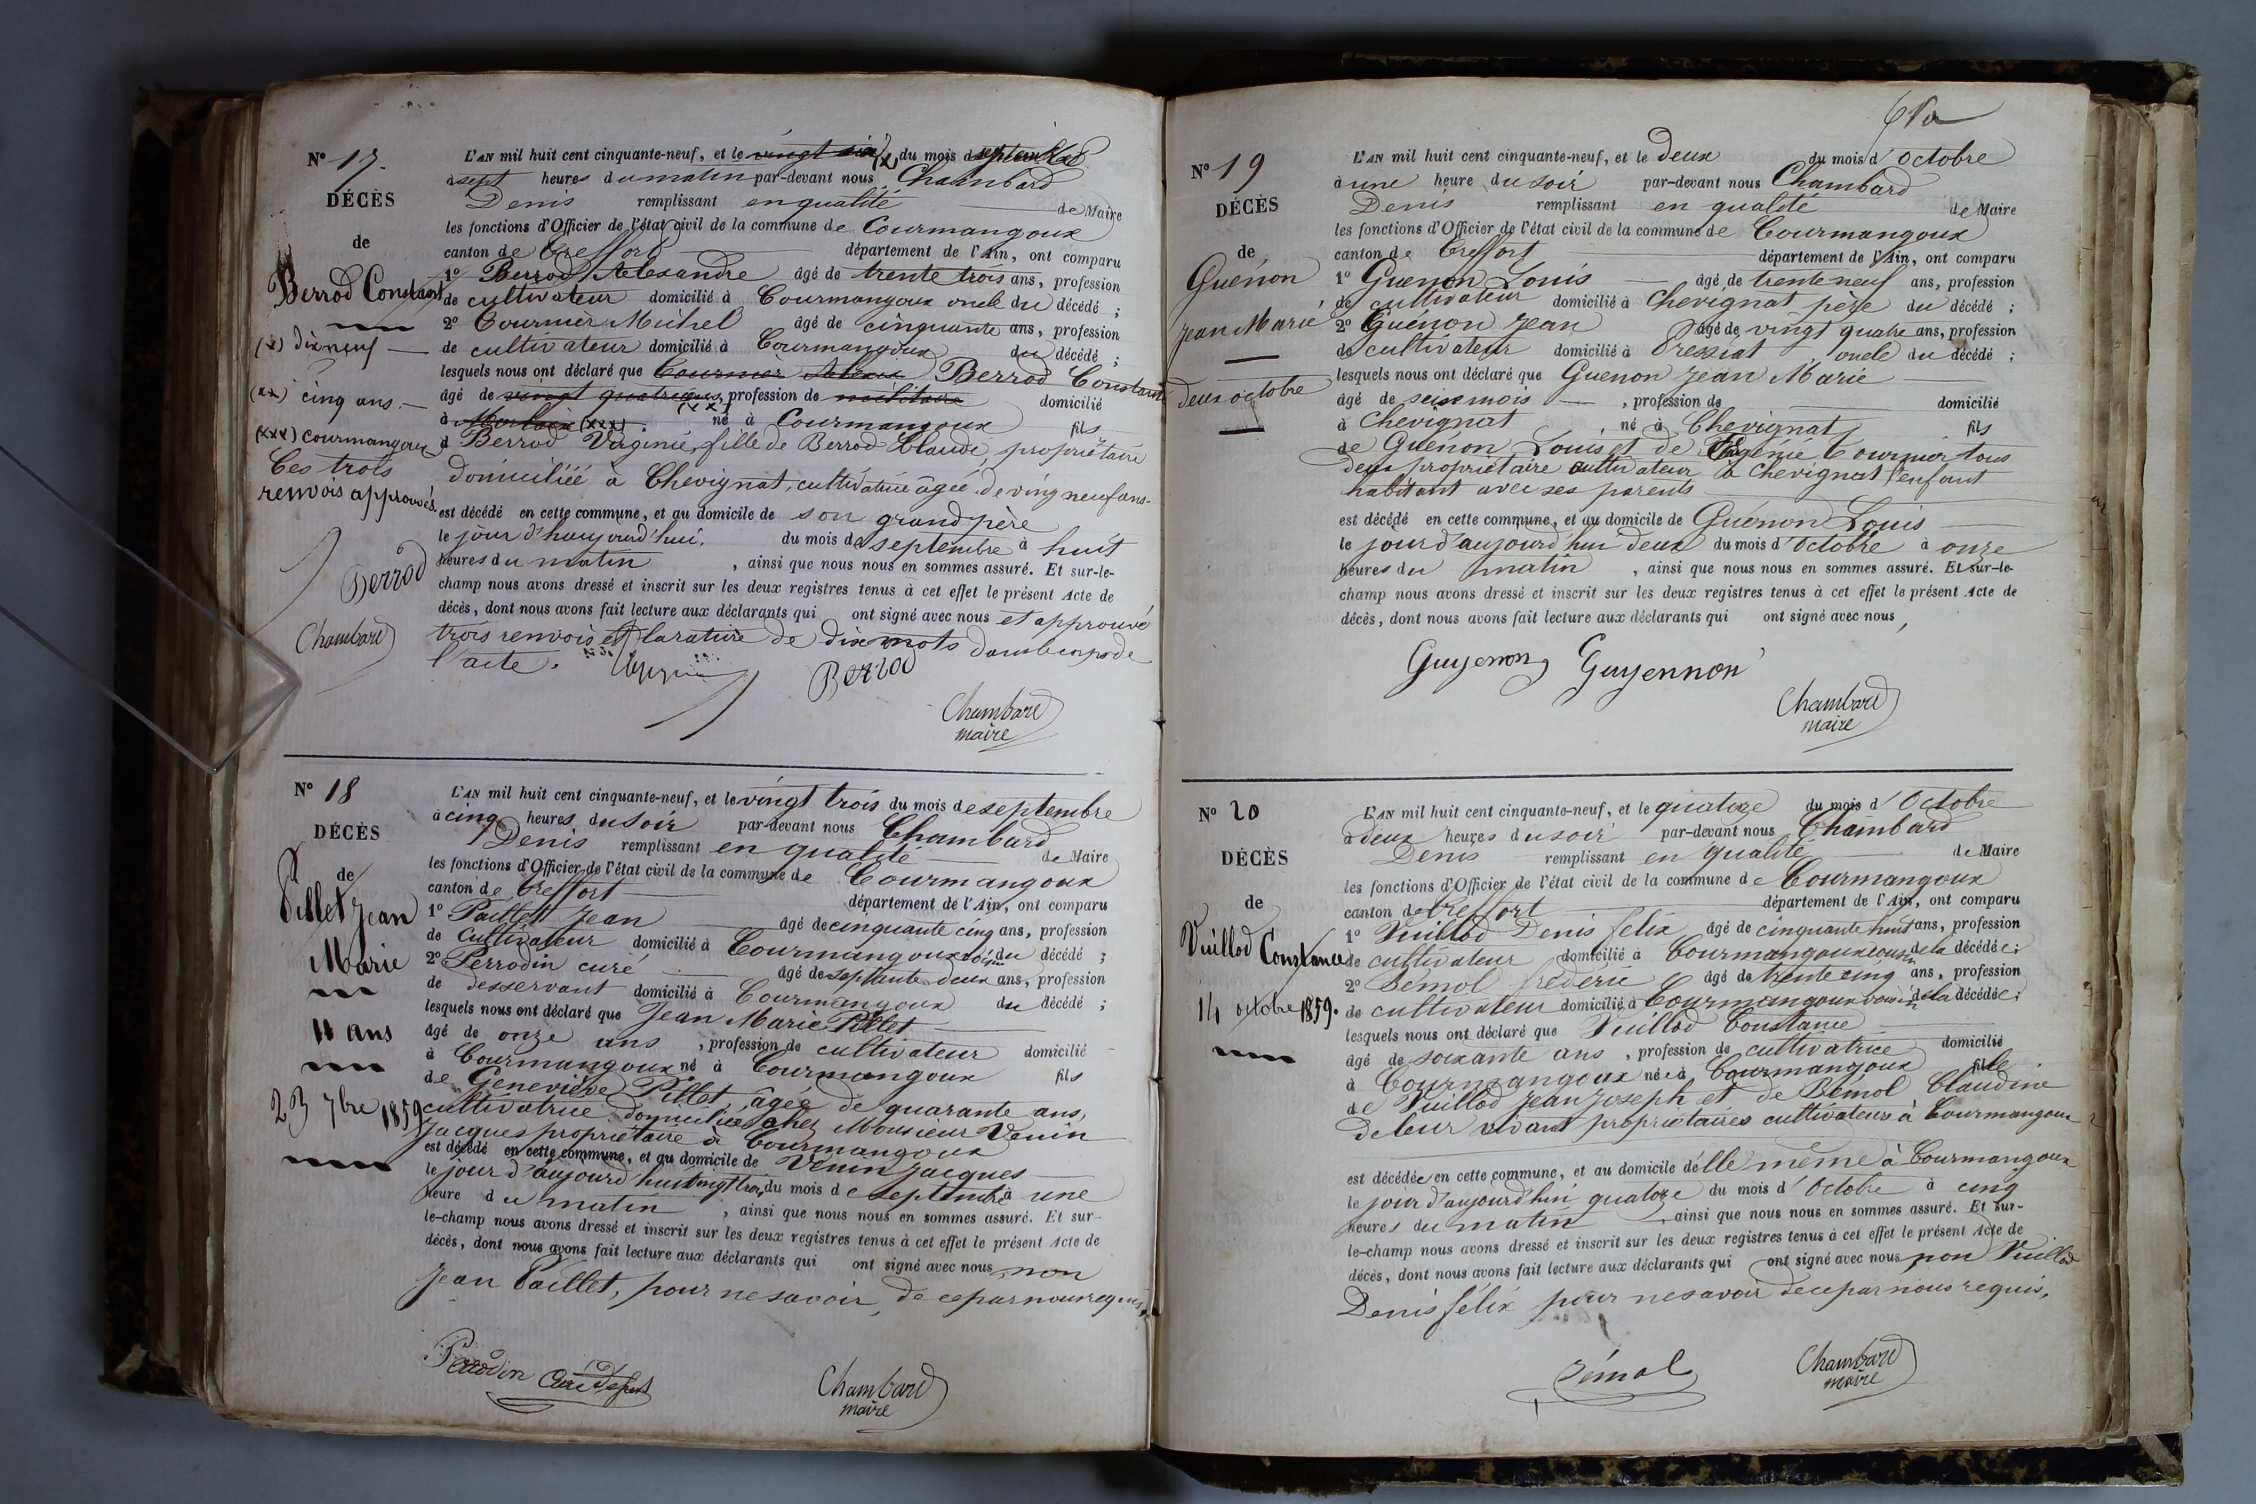 N° 17.
DÉCÈS
de
Berrod Constant
(x) dix neuf
(xx) cinq ans.
(xxx) courmangoux
Ces trois
renvois approuvés.
Berrod
Chambard
L'AN mil huit cent cinquante-neuf, et le vingt six (x) du mois de septembre
à sept heures du matin par-devant nous Chambard
Denis remplissant en qualité de Maire
les fonctions d'Officier de l'état civil de la commune de Courmangoux
canton de Treffort département de l'Ain, ont comparu
1° Berrod Alexandre âgé de trente trois ans, profession
de cultivateur domicilié à Courmangoux oncle du décédé ;
2° Cournier Michel âgé de cinquante ans, profession
de cultivateur domicilié à Courmangoux du décédé ;
lesquels nous ont déclaré que Cournier Alexis Berrod Constant
âgé de vingt quatre ans (xx), profession de militaire domicilié
à (xxx). né à Courmangoux fils
d Berrod Virginie, fille de Berrod Claude, propriétaire
domiciliée à Chevignat, cultivatrice âgée de ving neuf ans
est décédé en cette commune, et au domicile de son grand père
le jour d'haujourd'hui. du mois de septembre à huit
heures du matin , ainsi que nous nous en sommes assuré. Et sur-le-
champ nous avons dressé et inscrit sur les deux registres tenus à cet effet le présent Acte de
décès, dont nous avons fait lecture aux déclarants qui ont signé avec nous et approuvé
trois renvois et la rature de dix mots dans le corps de
l'acte.
Berrod
Chambard
maire
N° 18
DÉCÈS
de
Pillet Jean
Marie
11 ans
23 7bre 1859
L'AN mil huit cent cinquante-neuf, et le vingt trois du mois de septembre
à cinq heures du soir par-devant nous Chambard
Denis remplissant en qualité de Maire
les fonctions d'Officier de l'état civil de la commune de Courmangoux
canton de Treffort département de l'Ain, ont comparu
1° Paillet Jean âgé de cinquante cinq ans, profession
de cultivateur domicilié à Courmangoux voisin du décédé ;
2° Perrodin curé âgé de septante deux ans, profession
de desservant domicilié à Courmangoux du décédé ;
lesquels nous ont déclaré que Jean Marie Pillet
âgé de onze ans , profession de cultivateur domicilié
à Courmangoux né à Courmangoux fils
de Geneviève Pillet, âgée de quarante ans,
cultivatrice domiciliée chez Monsieur Venin
Jacques propriétaire à Courmangoux
est décédé en cette commune, et au domicile de Venin Jacques
le jour d'aujourd'hui vingt trois du mois de septembre à une
heure du matin , ainsi que nous nous en sommes assuré. Et sur-
le-champ nous avons dressé et inscrit sur les deux registres tenus à cet effet le présent Acte de
décès, dont nous avons fait lecture aux déclarants qui ont signé avec nous, non
Jean Paillet, pour ne savoir, de ce par nous requis,
Perrodin Curé
Chambard
maire
N° 19
DÉCÈS
de
Guénon
Jean Marie
deux octobre
L'AN mil huit cent cinquante-neuf, et le deux du mois d'Octobre
à une heure du soir par-devant nous Chambard
Denis remplissant en qualité de Maire
les fonctions d'Officier de l'état civil de la commune de Courmangoux
canton de Treffort département de l'Ain, ont comparu
1° Guenon Louis âgé de trente neuf ans, profession
de cultivateur domicilié à Chevignat père du décédé ;
2° Guénon Jean âgé de vingt quatre ans, profession
de cultivateur domicilié à Pressiat oncle du décédé ;
lesquels nous ont déclaré que Guenon Jean Marie
âgé de seize mois , profession de domicilié
à Chevignat , né à Chevignat fils
de Guénon Louis et de Eugénie Cournier tous
deux propriétaire cultivateur à Chevignat l'enfant
habitant avec ses parents
est décédé en cette commune, et au domicile de Guénon Louis
le jour d'aujourd'hui deux du mois d'Octobre à onze
heures du matin , ainsi que nous nous en sommes assuré. Et sur-le-
champ nous avons dressé et inscrit sur les deux registres tenus à cet effet le présent Acte de
décès, dont nous avons fait lecture aux déclarants qui ont signé avec nous,
Guyenon Guyennon
Chambard
maire
N° 20
DÉCÈS
de
Vuillod Constance
14 octobre 1859.
L'AN mil huit cent cinquante-neuf, et le quatoze du mois d'Octobre
à deux heures du soir par-devant nous Chambard
Denis remplissant en qualité de Maire
les fonctions d'Officier de l'état civil de la commune de Courmangoux
canton de Treffort département de l'Ain, ont comparu
1° Vuillod Denis félix âgé de cinquante huit ans, profession
de cultivateur domicilié à Courmangoux cousin de la décédée ;
2° Bémol frédéric âgé de trente cinq ans, profession
de cultivateur domicilié à Courmangoux voisin de la décédée ;
lesquels nous ont déclaré que Vuillod Constance
âgé de soixante ans , profession de cultivatrice domicilié
à Courmangoux née à Courmangoux fille
de Vuillod Jean Joseph et de Bémol Claudine
de leur vivant propriétaires cultivateurs à Courmangoux
est décédée en cette commune, et au domicile d'elle même à Courmangoux
le jour d'aujourd'hui quatoze du mois d'Octobre à cinq
heures du matin , ainsi que nous nous en sommes assuré. Et sur-
le-champ nous avons dressé et inscrit sur les deux registres tenus à cet effet le présent Acte de
décès, dont nous avons fait lecture aux déclarants qui ont signé avec nous non Vuillod
Denis félix pour ne savoir de ce par nous requis.
Bémol
Chambard
maire